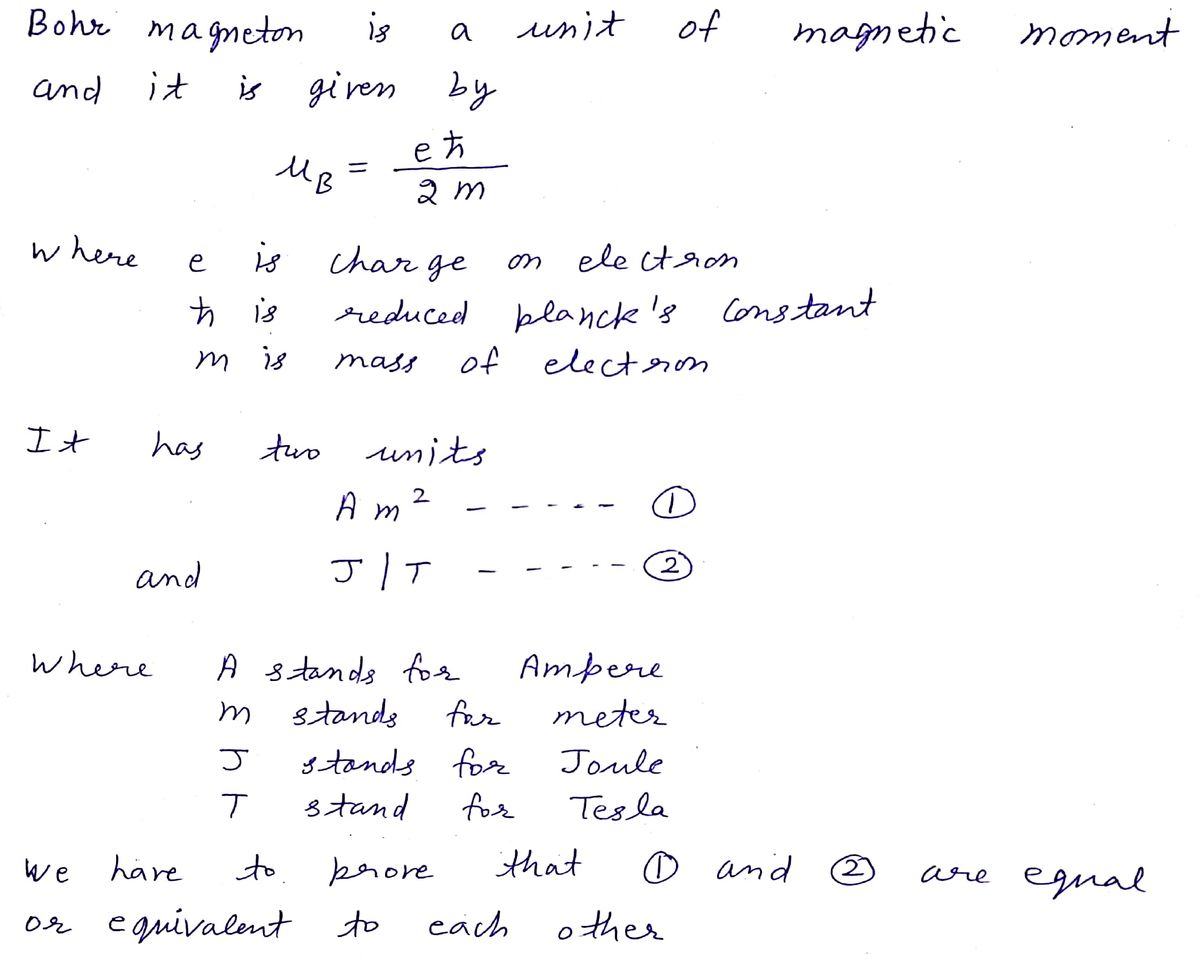 Bohr magneton is a unit of magnetic moment
and it is given by
μB = eħ / 2m
where e is charge on electron
ħ is reduced planck's constant
m is mass of electron
It has two units
Am² ------ ①
and J/T ------ ②
where A stands for Ampere
m stands for meter
J stands for Joule
T stand for Tesla
we have to prove that ① and ② are equal
or equivalent to each other